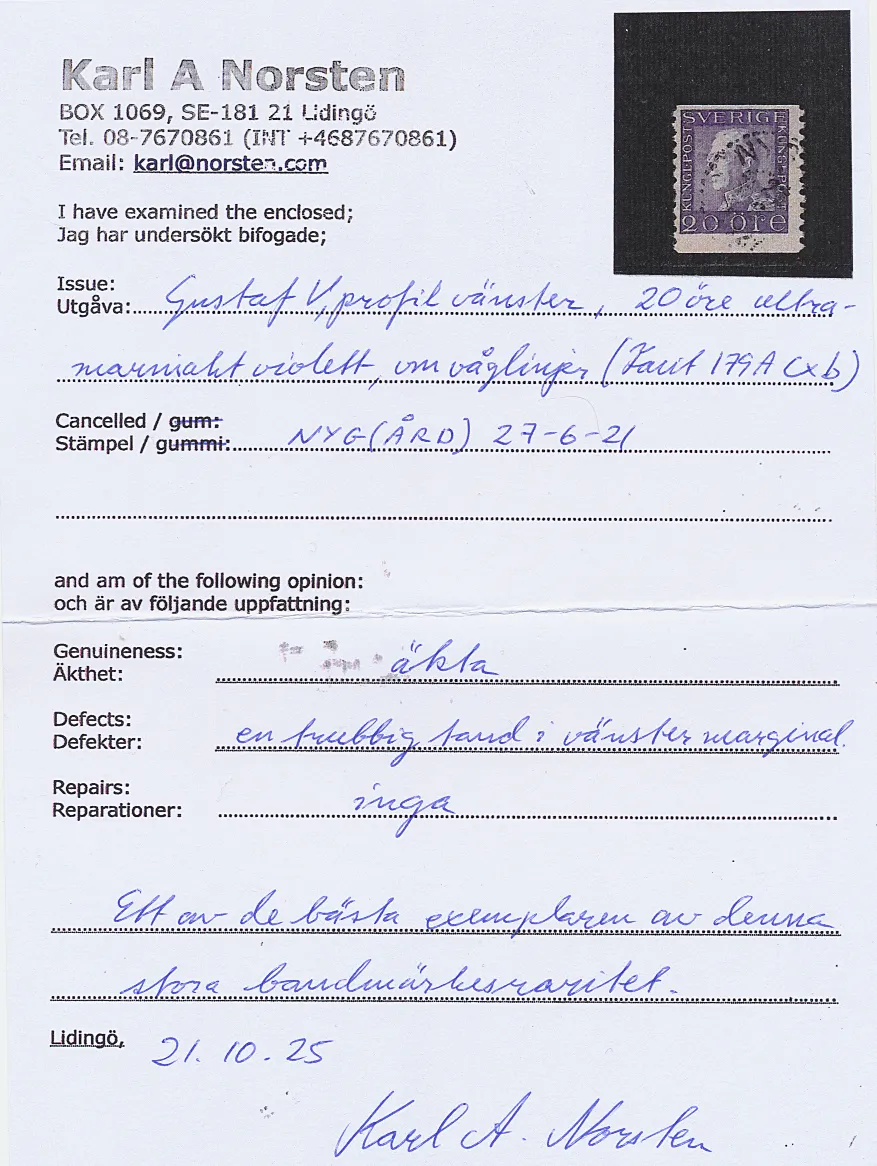 Karl A Norsten
BOX 1069, SE-181 21 Lidingö
Tel. 08-7670861 (INT +4687670861)
Email: karl@norsten.com
SVERIGE
KUNGL·POST
20 ÖRE
I have examined the enclosed;
Jag har undersökt bifogade;
Issue:
Utgåva: Gustaf V, profil vänster, 20 öre ultra-
violett, om våglinjer (Facit 179A Cxb)
Cancelled / gum:
Stämpel / gummi: NYG(ÅRD) 27-6-21
and am of the following opinion:
och är av följande uppfattning:
Genuineness:
Äkthet: äkta
Defects:
Defekter: en trubbig tand i vänster marginal.
Repairs:
Reparationer: inga
Ett av de bästa exemplaren av denna
stora bandmärkesraritet.
Lidingö, 21.10.25
Karl A. Norsten